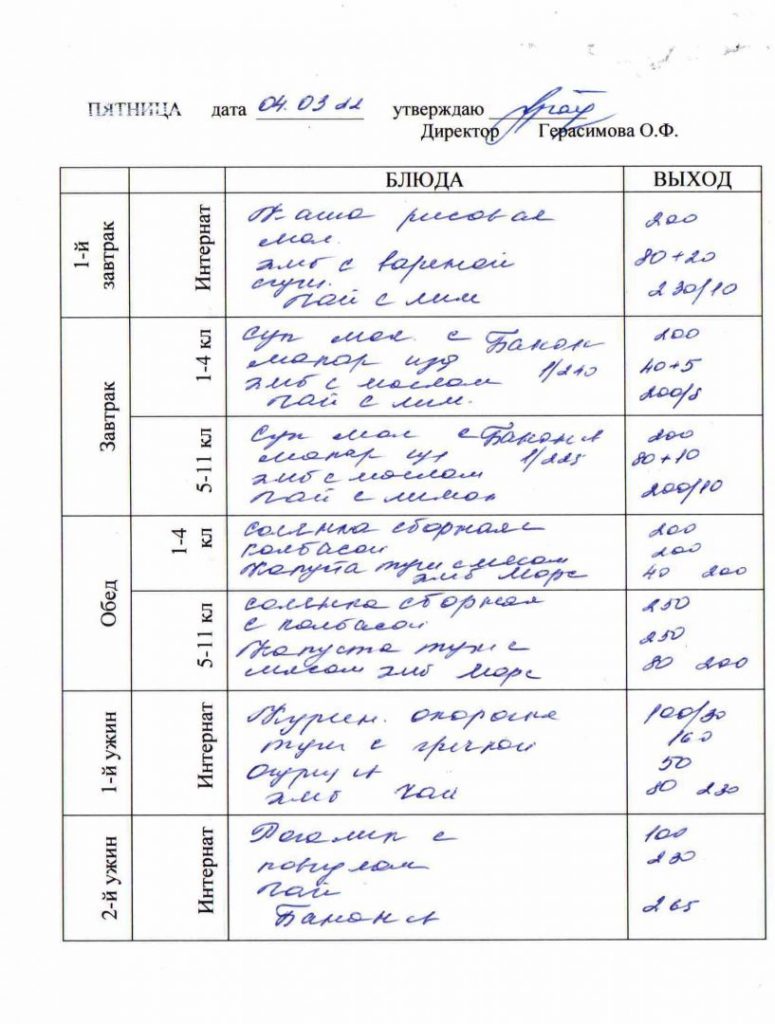 ПЯТНИЦА дата 04.03 22 утверждаю
Директор Герасимова О.Ф.
БЛЮДА ВЫХОД
1-й завтрак Интернат
Каша рисовая 200
мол.
хлеб с вареной 80+20
сгущ.
чай с лим 230/10
Завтрак 1-4 кл
суп мол. с Банан 200
макар изд 1/240 40+5
хлеб с маслом
чай с лим. 200/5
5-11 кл
суп мол с Бананы 200
макар 1/225 80+10
хлеб с маслом
чай с лимон 200/10
Обед 1-4 кл
солянка сборная с 200
колбасой 200
Капуста туш с мясом
хлеб Морс 40 200
5-11 кл
солянка сборная 250
с колбасой
Капуста туш с 250
мясом хлеб Морс 80 200
1-й ужин Интернат
Курин. окорочка 100/30
туш с гречкой 160
Огурцы 50
хлеб Чай 80 230
2-й ужин Интернат
Рогалик с 100
повидлом 230
чай
Бананы 265